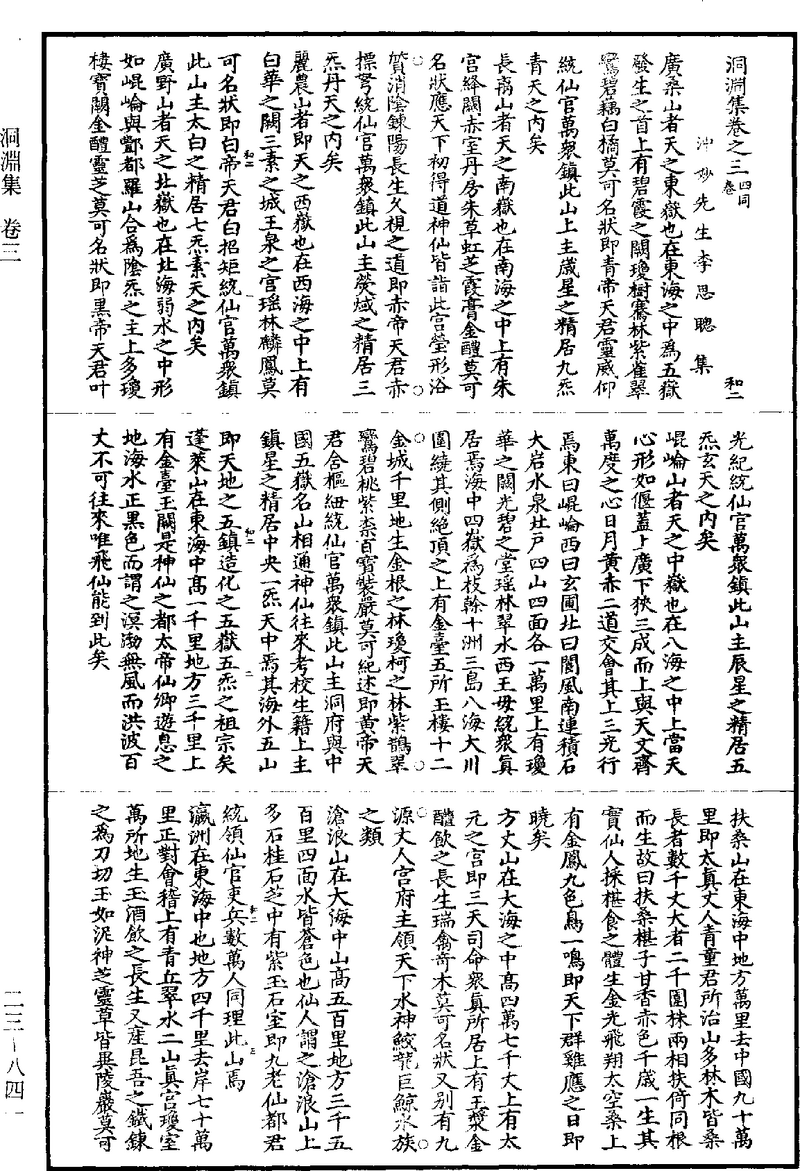 洞淵集卷之三四同卷
和二
冲妙先生李思聰集
廣桑山者天之東嶽也在東海之中爲五嶽
發生之首上有碧霞之闕瓊樹騫林紫雀翠
鸞碧藕白橘莫可名狀即青帝天君靈威仰
統仙官萬衆鎮此山上主歲星之精居九炁
青天之內矣
長离山者天之南嶽也在南海之中上有朱
宫絳闕赤室丹房朱草虹芝霞膏金醴莫可
名狀應天下初得道神仙皆詣此宫瑩形浴
質消陰鍊陽長生久視之道即赤帝天君赤
標弩統仙官萬衆鎮此山主熒惑之精居三
炁丹天之內矣
麗農山者即天之西嶽也在西海之中上有
白華之闕三素之城玉泉之宫瑶林麟鳳莫
可名狀即白帝天君白招矩統仙官萬衆鎮
此山主太白之精居七炁素天之內矣
廣野山者天之北嶽也在北海弱水之中形
如崐崘與酆都羅山合爲陰炁之主上多瓊
樓寶闕金醴靈芝莫可名狀即黑帝天君叶
光紀統仙官萬衆鎮此山主辰星之精居五
炁玄天之內矣
崐崘山者天之中嶽也在八海之中上當天
心形如偃蓋上廣下狹三成而上與天文齊
萬度之心日月黄赤二道交會其上三光行
焉東曰崐崘西曰玄圃北曰閬風南連積石
大岩水泉北戶四山四面各一萬里上有瓊
華之闕光碧之堂瑶林翠水西王母統衆真
居焉海中四嶽爲枝幹十洲三島八海大川
圍繞其側絶頂之上有金臺五所玉樓十二
金城千里地生金根之林瓊柯之林紫鵲翠
鸞碧桃紫柰百寶裝嚴莫可紀述即黄帝天
君含樞紐統仙官萬衆鎮此山主洞府與中
國五嶽名山相通神仙往來考校生籍上主
鎮星之精居中央一炁天中焉其海外五山
即天地之五鎮造化之五嶽五炁之祖宗矣
蓬萊山在東海中高一千里地方三千里上
有金臺玉闕是神仙之都太帝仙卿遊息之
地海水正黑色而謂之溟渤無風而洪波百
丈不可往來唯飛仙能到此矣
扶桑山在東海中地方萬里去中國九十萬
里即太真丈人青童君所治山多林木皆桑
長者數千丈大者二千圍林兩相扶倚同根
而生故曰扶桑椹子甘香赤色千歲一生其
實仙人採椹食之體生金光飛翔太空桑上
有金鳳九色鳥一鳴即天下群雞應之日即
曉矣
方丈山在大海之中高四萬七千丈上有太
元之宫即三天司命衆真所居上有玉漿金
醴飲之長生瑞禽奇木莫可名狀又别有九
源丈人宫府主領天下水神蛟龍巨鯨水族
之類
滄浪山在大海中山高五百里地方三千五
百里四面水皆蒼色也仙人謂之滄浪山上
多石桂石芝中有紫玉石室即九老仙都君
統領仙官吏兵數萬人同理此山焉
瀛洲在東海中也地方四千里去岸七十萬
里正對會稽上有青丘翠水二山真宫瓊室
萬所地生玉酒飲之長生又産昆吾之鐵鍊
之爲刀切玉如泥神芝靈草皆異陵巖莫可
洞淵集　卷三
二三－八四一